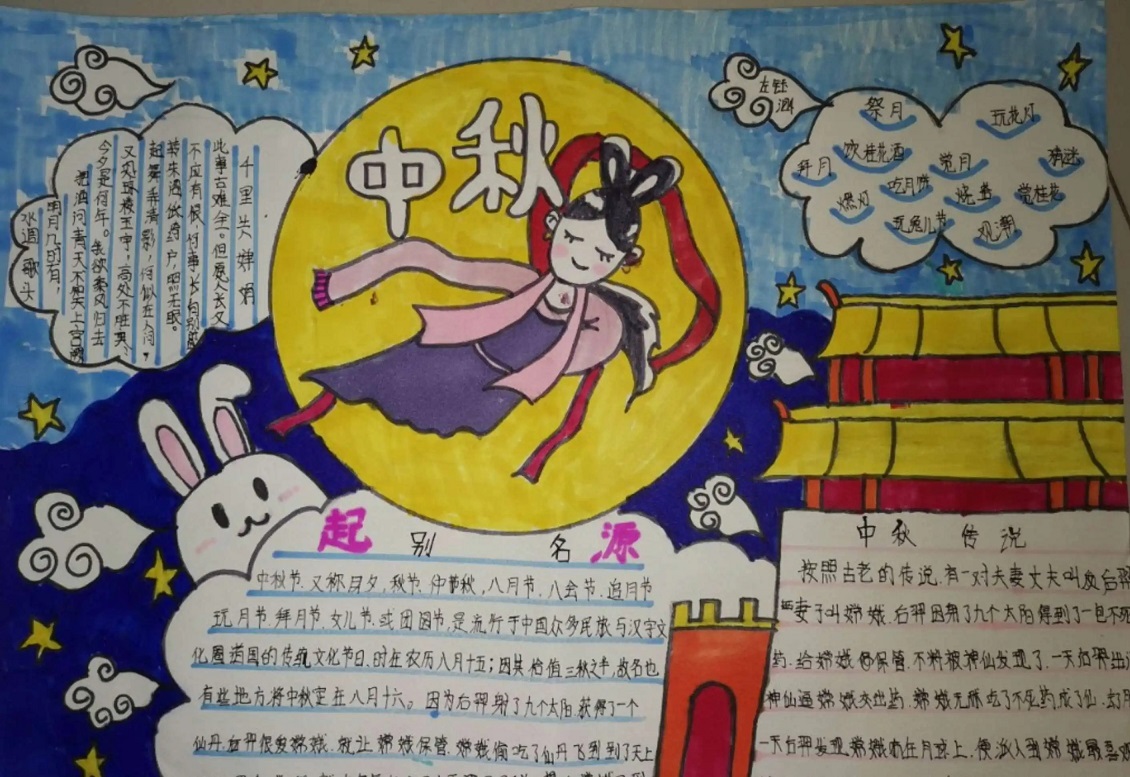 中秋
千里共婵娟
此事古难全。但愿人长久
不应有恨,何事长向别时
转朱阁,低绮户,照无眠。
起舞弄清影,何似在人间,
又恐琼楼玉宇,高处不胜寒,
今夕是何年。我欲乘风归去
把酒问青天不知天上宫阙
明月几时有,
水调歌头
祭月
玩花灯
拜月
饮桂花酒
赏月
猜谜
燃灯
吃月饼
烧塔
赏桂花
玩兔儿爷
观潮
起 别 名 源
中秋节,又称月夕,秋节,仲秋,八月节,八会节,追月节
玩月节,拜月节,女儿节,或团圆节,是流行于中国众多民族与汉字文
化圈诸国的传统文化节日,时在农历八月十五;因其恰值三秋之半,故名也
有些地方将中秋定在八月十六。因为后羿射了九个太阳获得了一个
仙丹,后羿很爱嫦娥,就让嫦娥保管,嫦娥偷吃了仙丹飞到到了天上
中秋 传说
按照古老的传说,有一对夫妻丈夫叫后羿
妻子叫嫦娥,后羿因射了九个太阳得到了一包不死
药,给嫦娥保管,不料被神仙发现了,一天后羿出
神仙逼嫦娥交出药,嫦娥无琢吃了不死药成了仙,
一天后羿发现嫦娥在月球上,便派人到嫦娥最喜